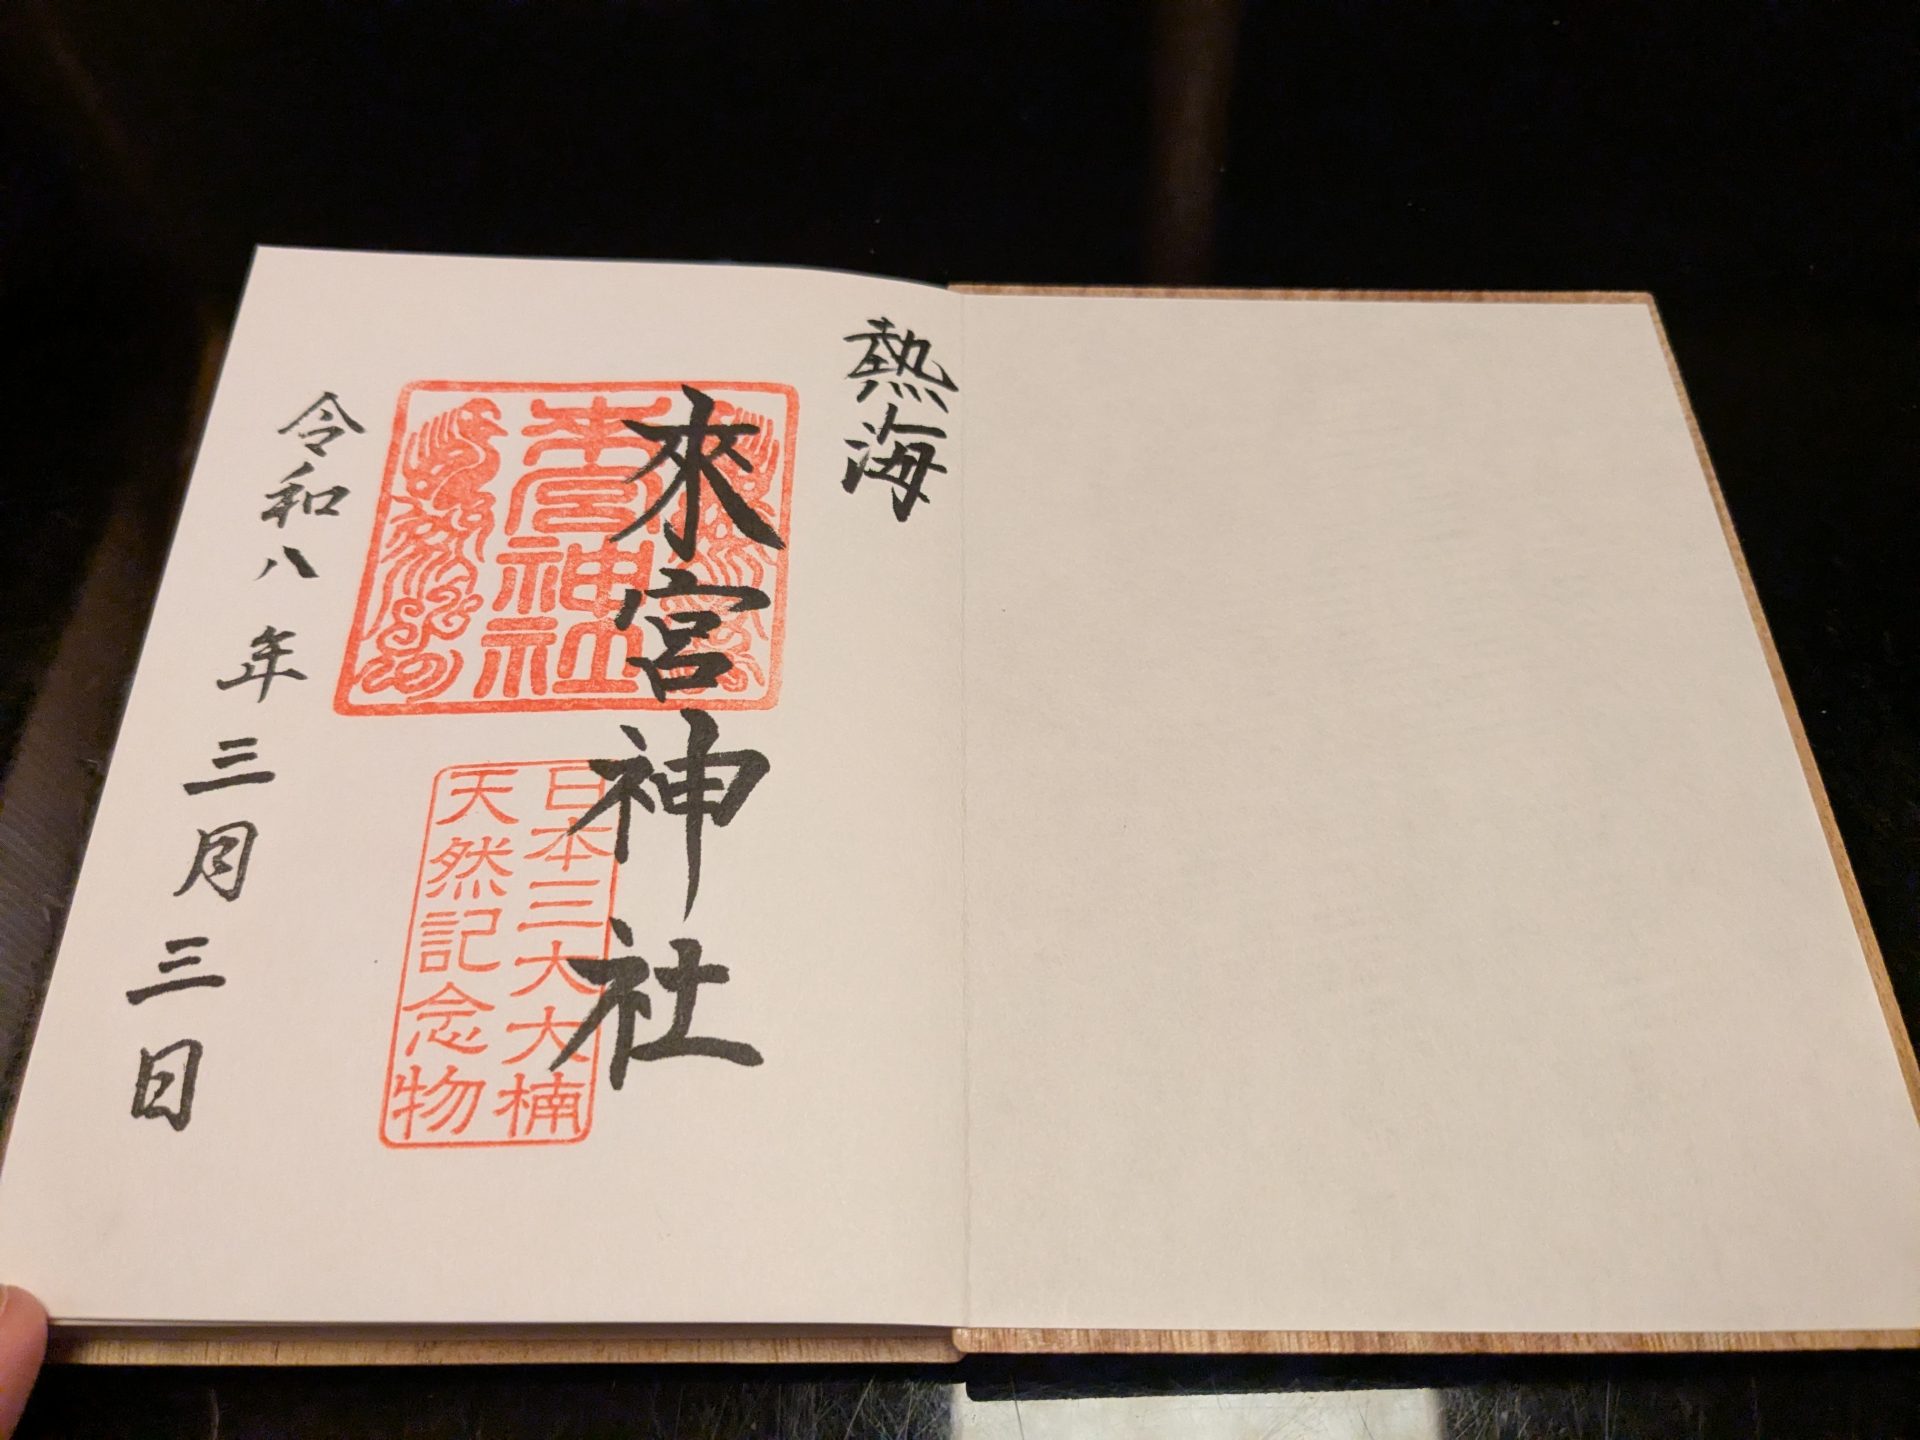 熱海
來宮神社
來宮神社
日本三大大楠
天然記念物
令和八年三月三日